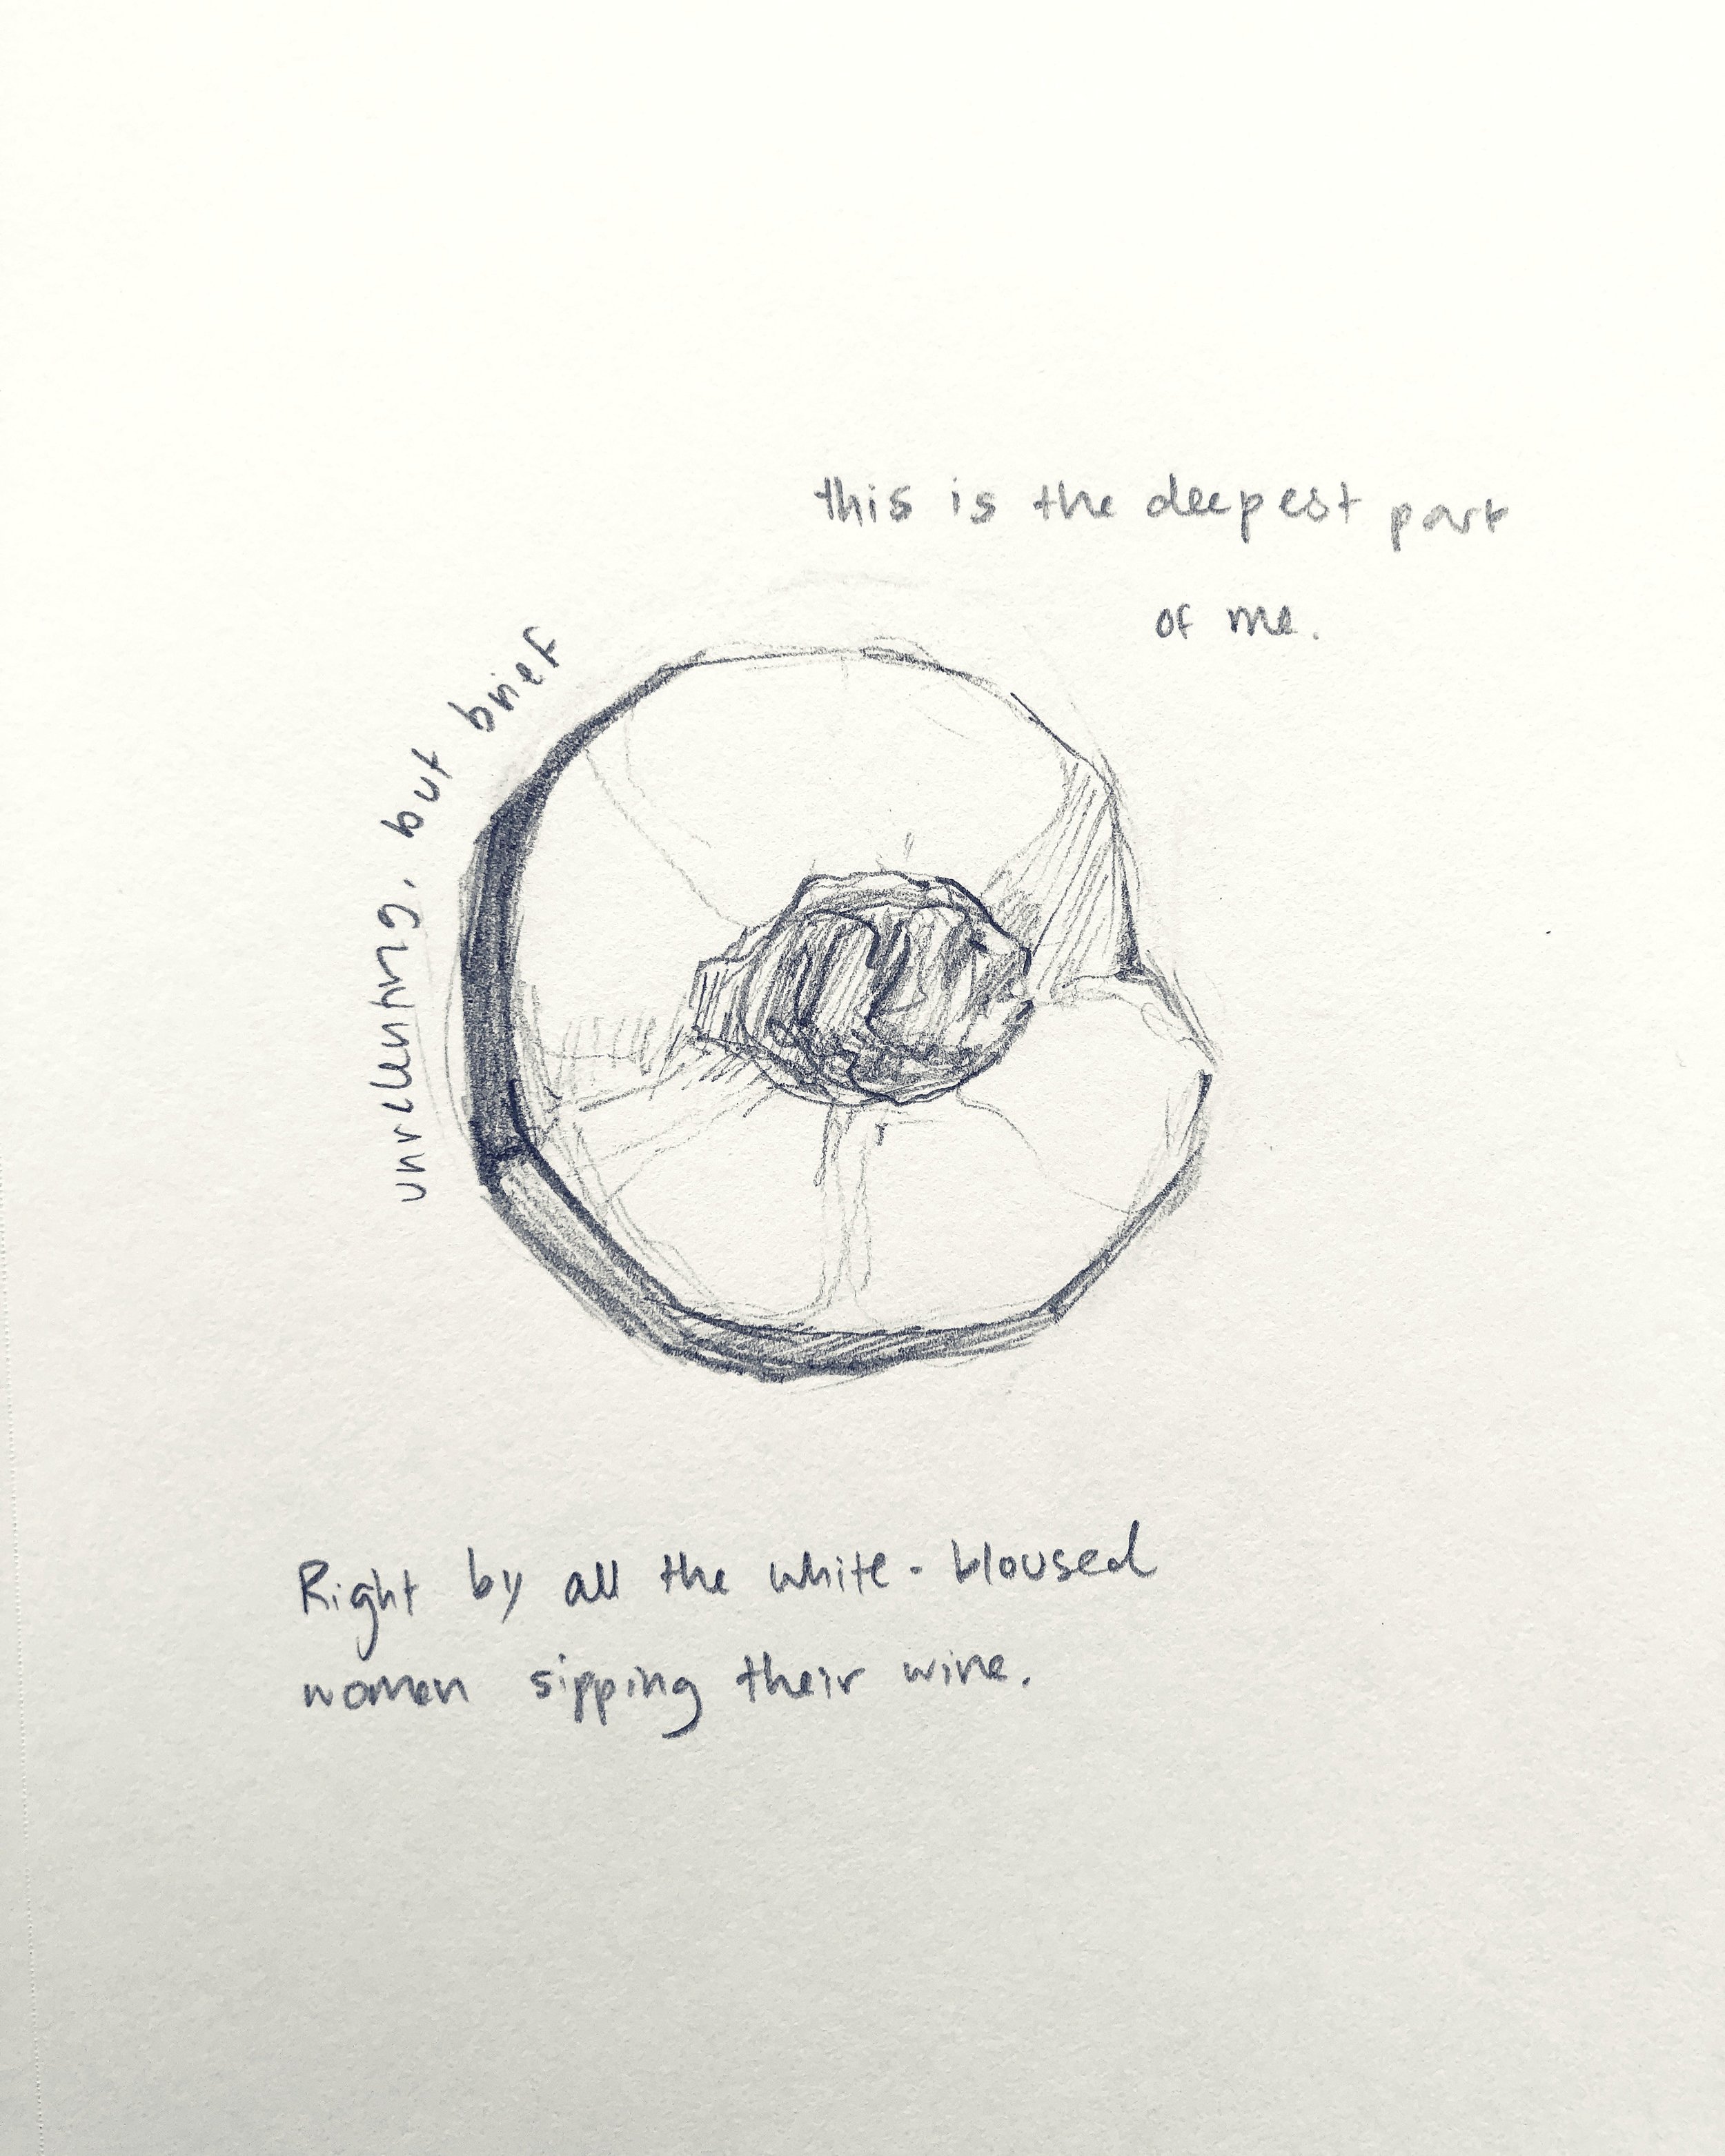 this is the deepest part
of me.
unrelenting, but brief
Right by all the white-bloused
women sipping their wine.